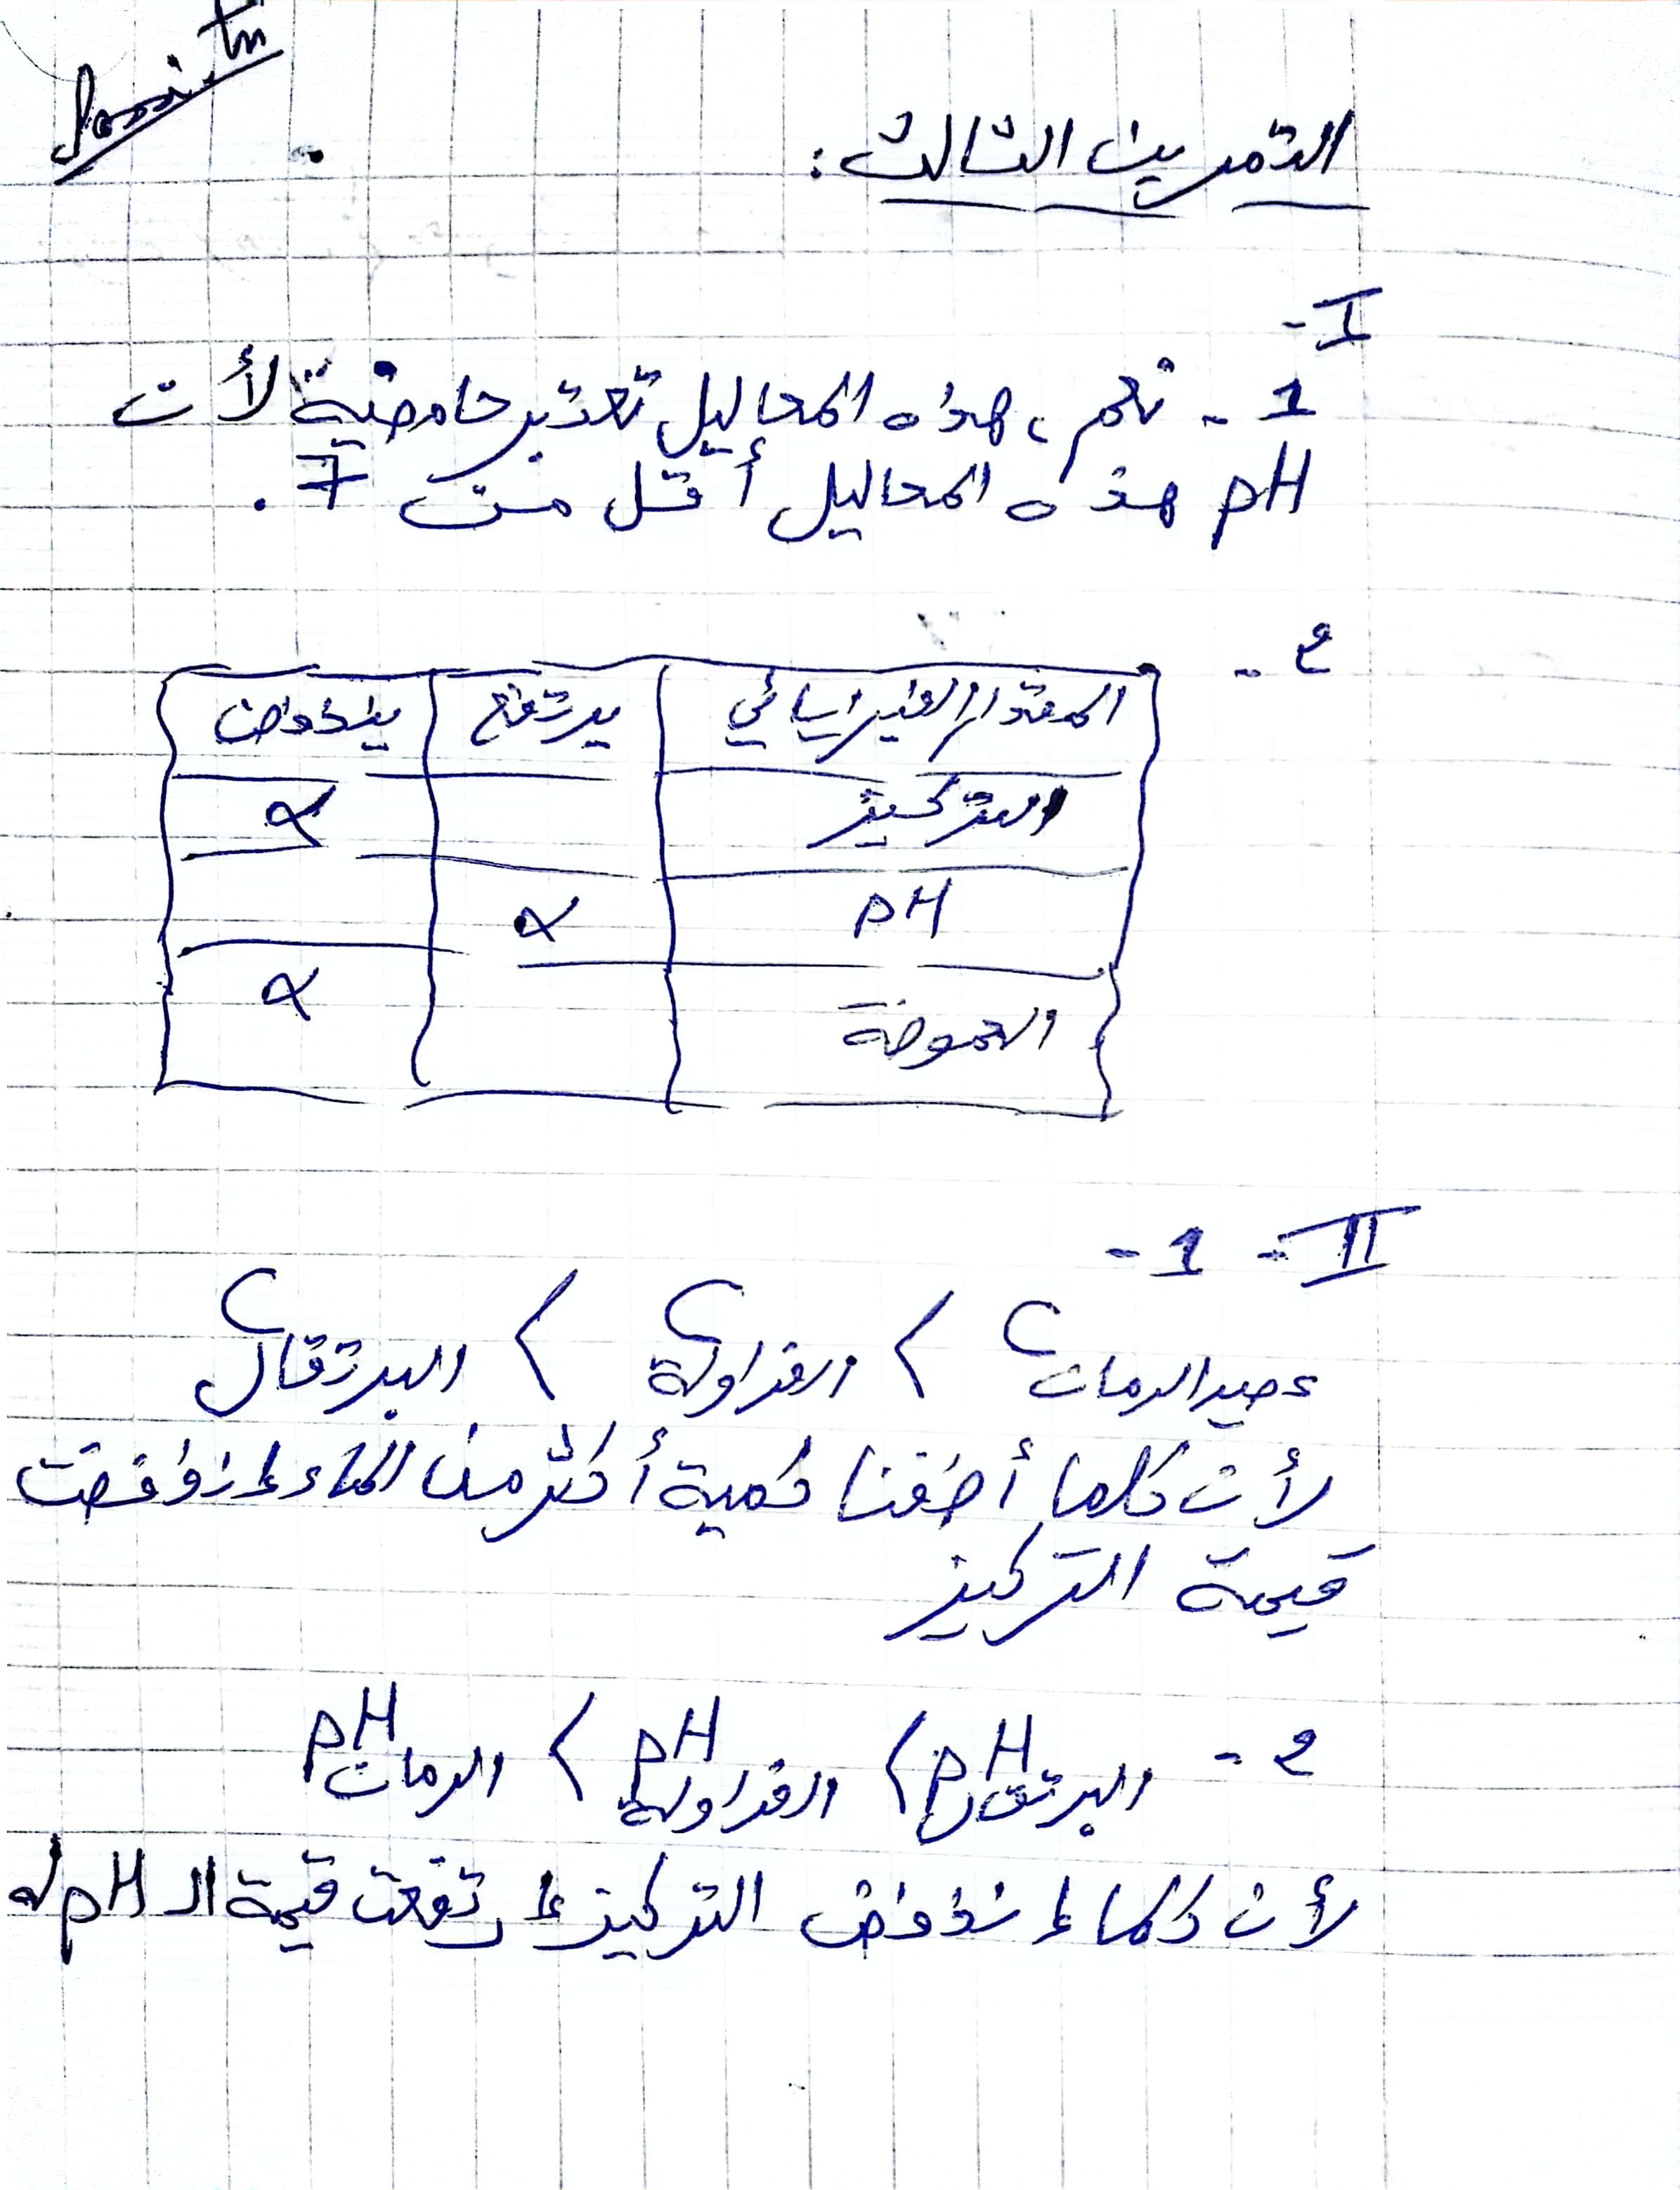 التمرين الثالث :
I-
1 - نعم ، هذه المحاليل تعتبر حامضية لأن
pH هذه المحاليل أقل من 7 .
2 -
المقدار الفيزيائي يرتفع ينخفض
التركيز α
pH α
الحموضة α
II - 1 -
C عصير الرمان > C الفراولة > C البرتقال
لأن كلما أضفنا كمية أكثر من الماء انخفضت
قيمة التركيز
2 - pH البرتقال > pH الفراولة > pH الرمان
لأن كلما انخفض التركيز ارتفعت قيمة الـ pH